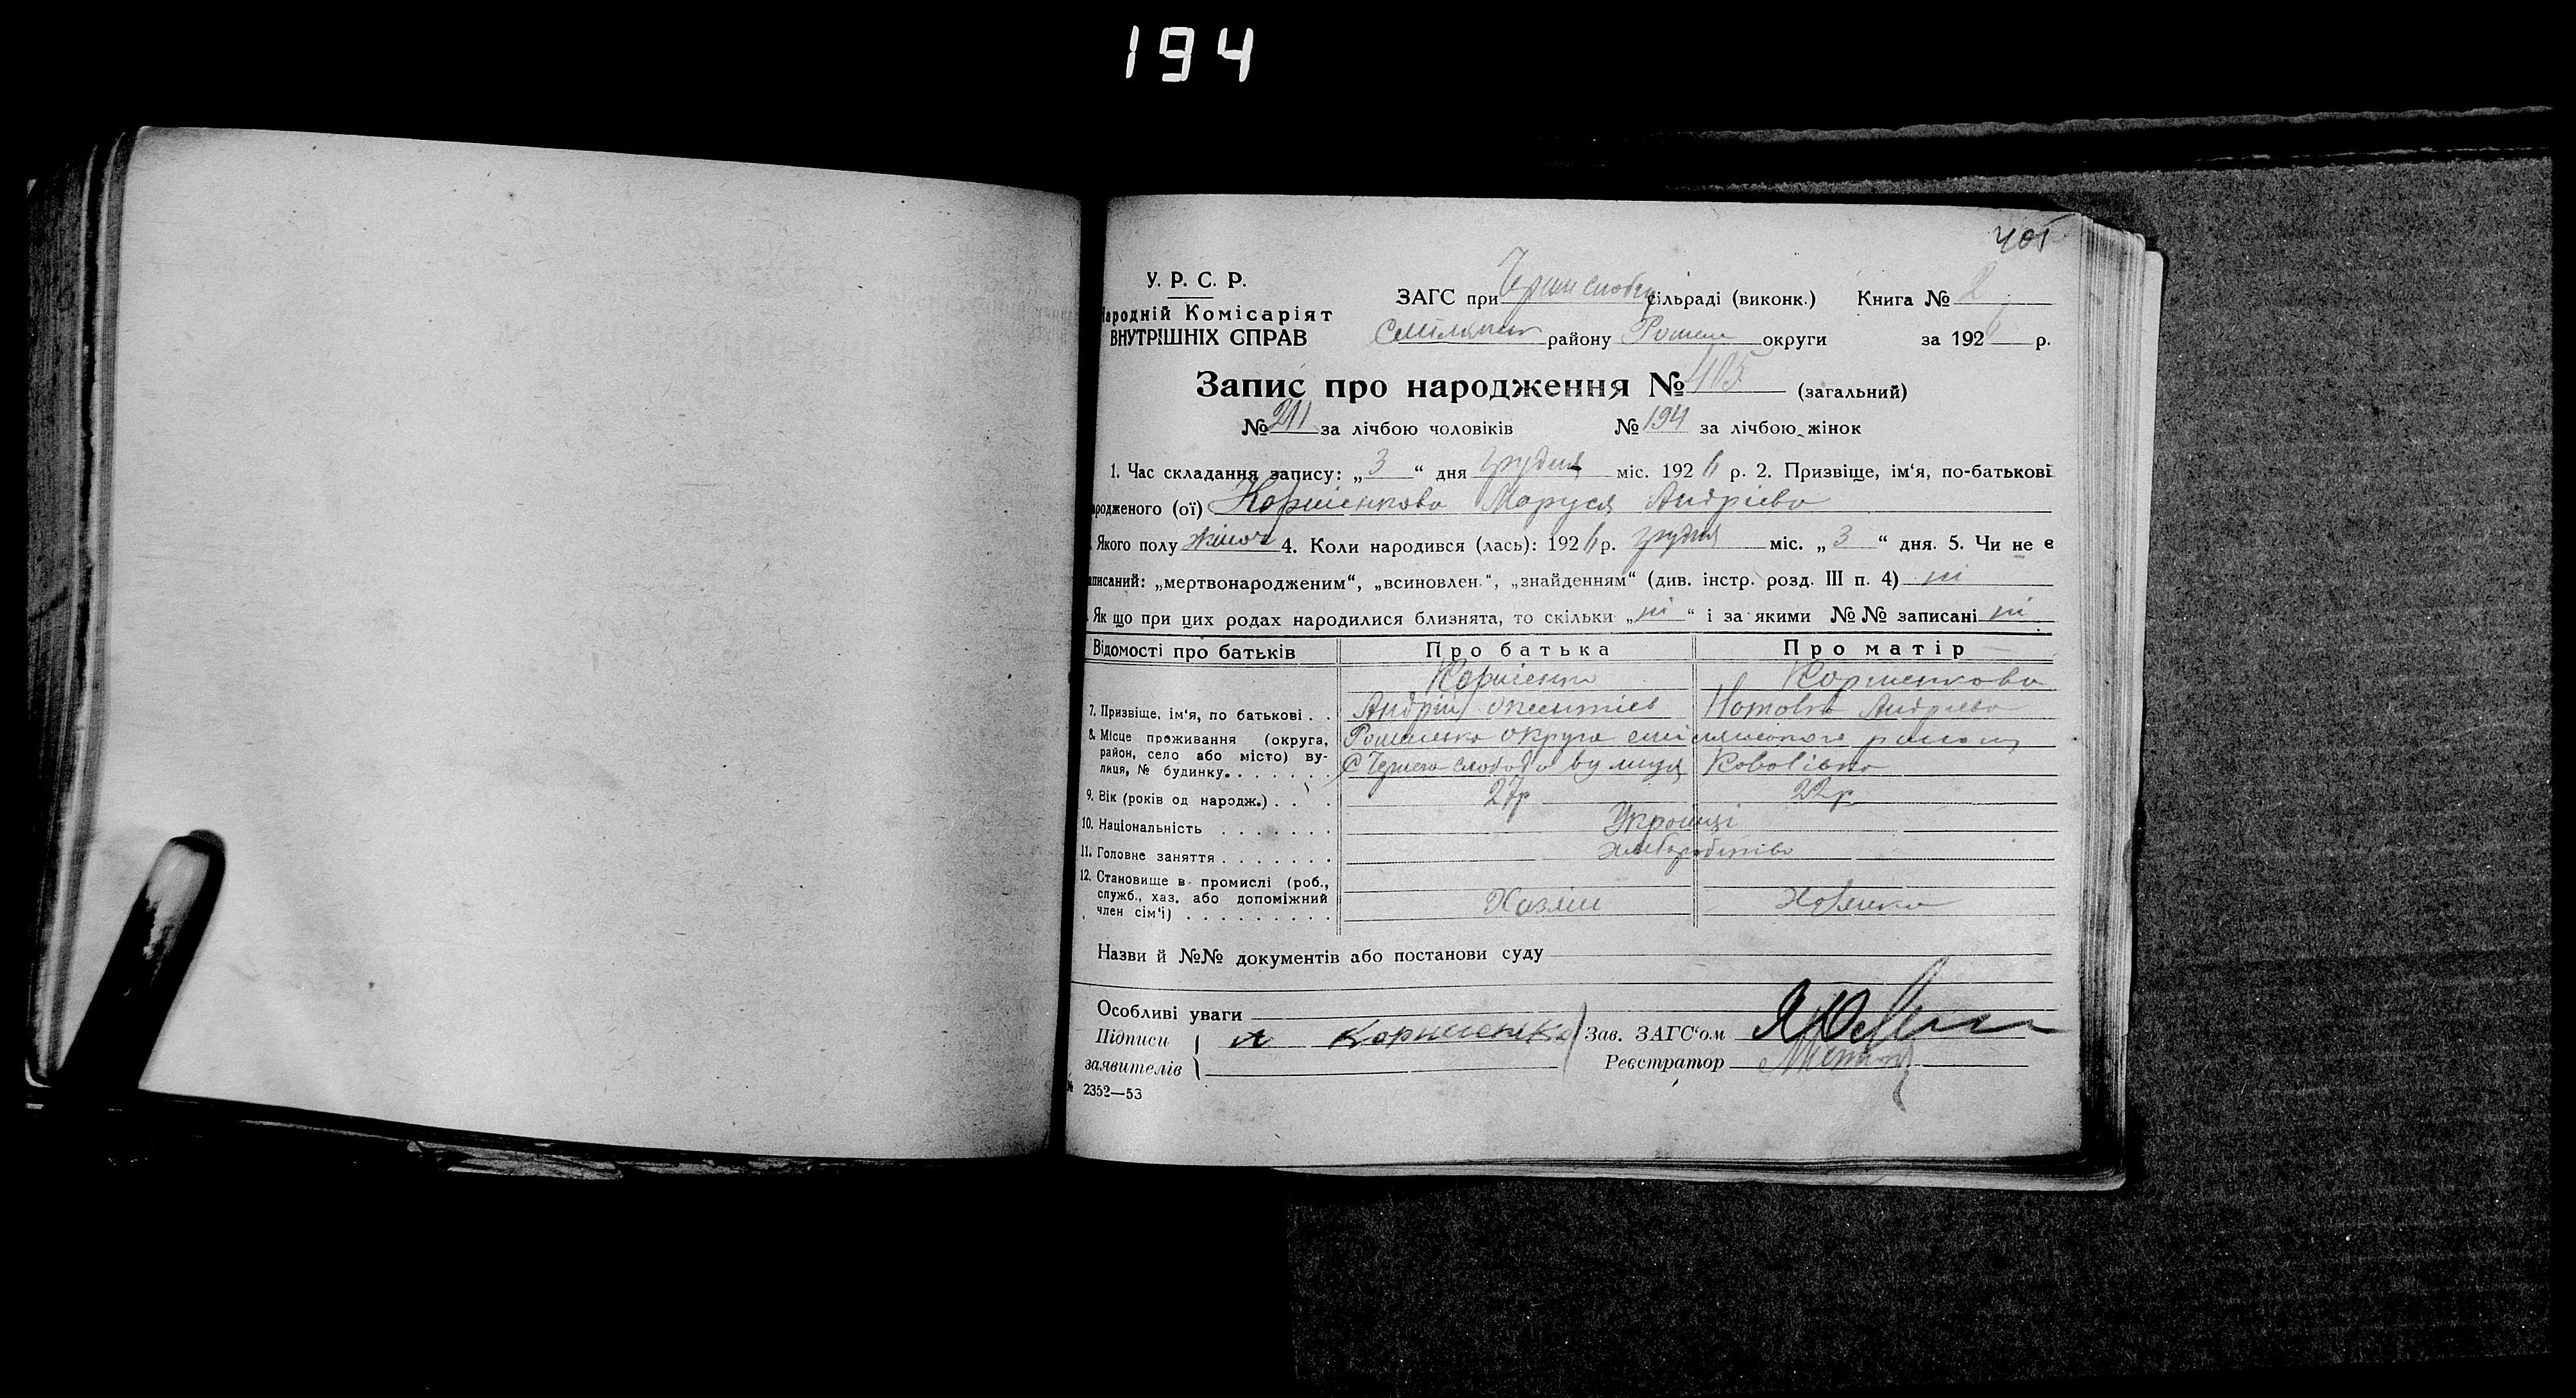 194
405
У. Р. С. Р.
Народній Комісаріят
ВНУТРІШНІХ СПРАВ
ЗАГС при сільраді (виконк.) Книга № 2
району Ромен округи за 1926 р.
Запис про народження № 405 (загальний)
№ 211 за лічбою чоловіків № 194 за лічбою жінок
1. Час складання запису: „3“ дня грудня міс. 1926 р. 2. Призвіще, ім‘я, по-батькові
родженого (ої) Корнієнкова Маруся Андрієва
Якого полу жіноч 4. Коли народився (лась): 1926 р. грудня міс. „3“ дня. 5. Чи не є
аписаний: „мертвонародженим“, „всиновлен.“, „знайденням“ (див. інстр. розд. III п. 4) ні
Як що при цих родах народилися близнята, то скільки „ні“ і за якими №№ записані ні
Відомості про батьків Про батька Про матір
Корнієнко Корнієнкова
7. Призвіще, ім‘я, по батькові . . Андрій Андрієва
8. Місце проживання (округа, район, село або місто) вулиця, № будинку. . . . . . . Роменська округа
С Чернеча Слобода вулиця
9. Вік (років од народж.) . . . 27р 22р
10. Національність . . . . . . . Українці
11. Головне заняття . . . . . . . хліборобство
12. Становище в промислі (роб.,
служб., хаз. або допоміжний
член сім‘ї) . . . . . . . . . Хазяїн Хазяйка
Назви й №№ документів або постанови суду
Особливі уваги
Підписи Корниенко Зав. ЗАГС‘ом
заявителів Реєстратор
№ 2352—53